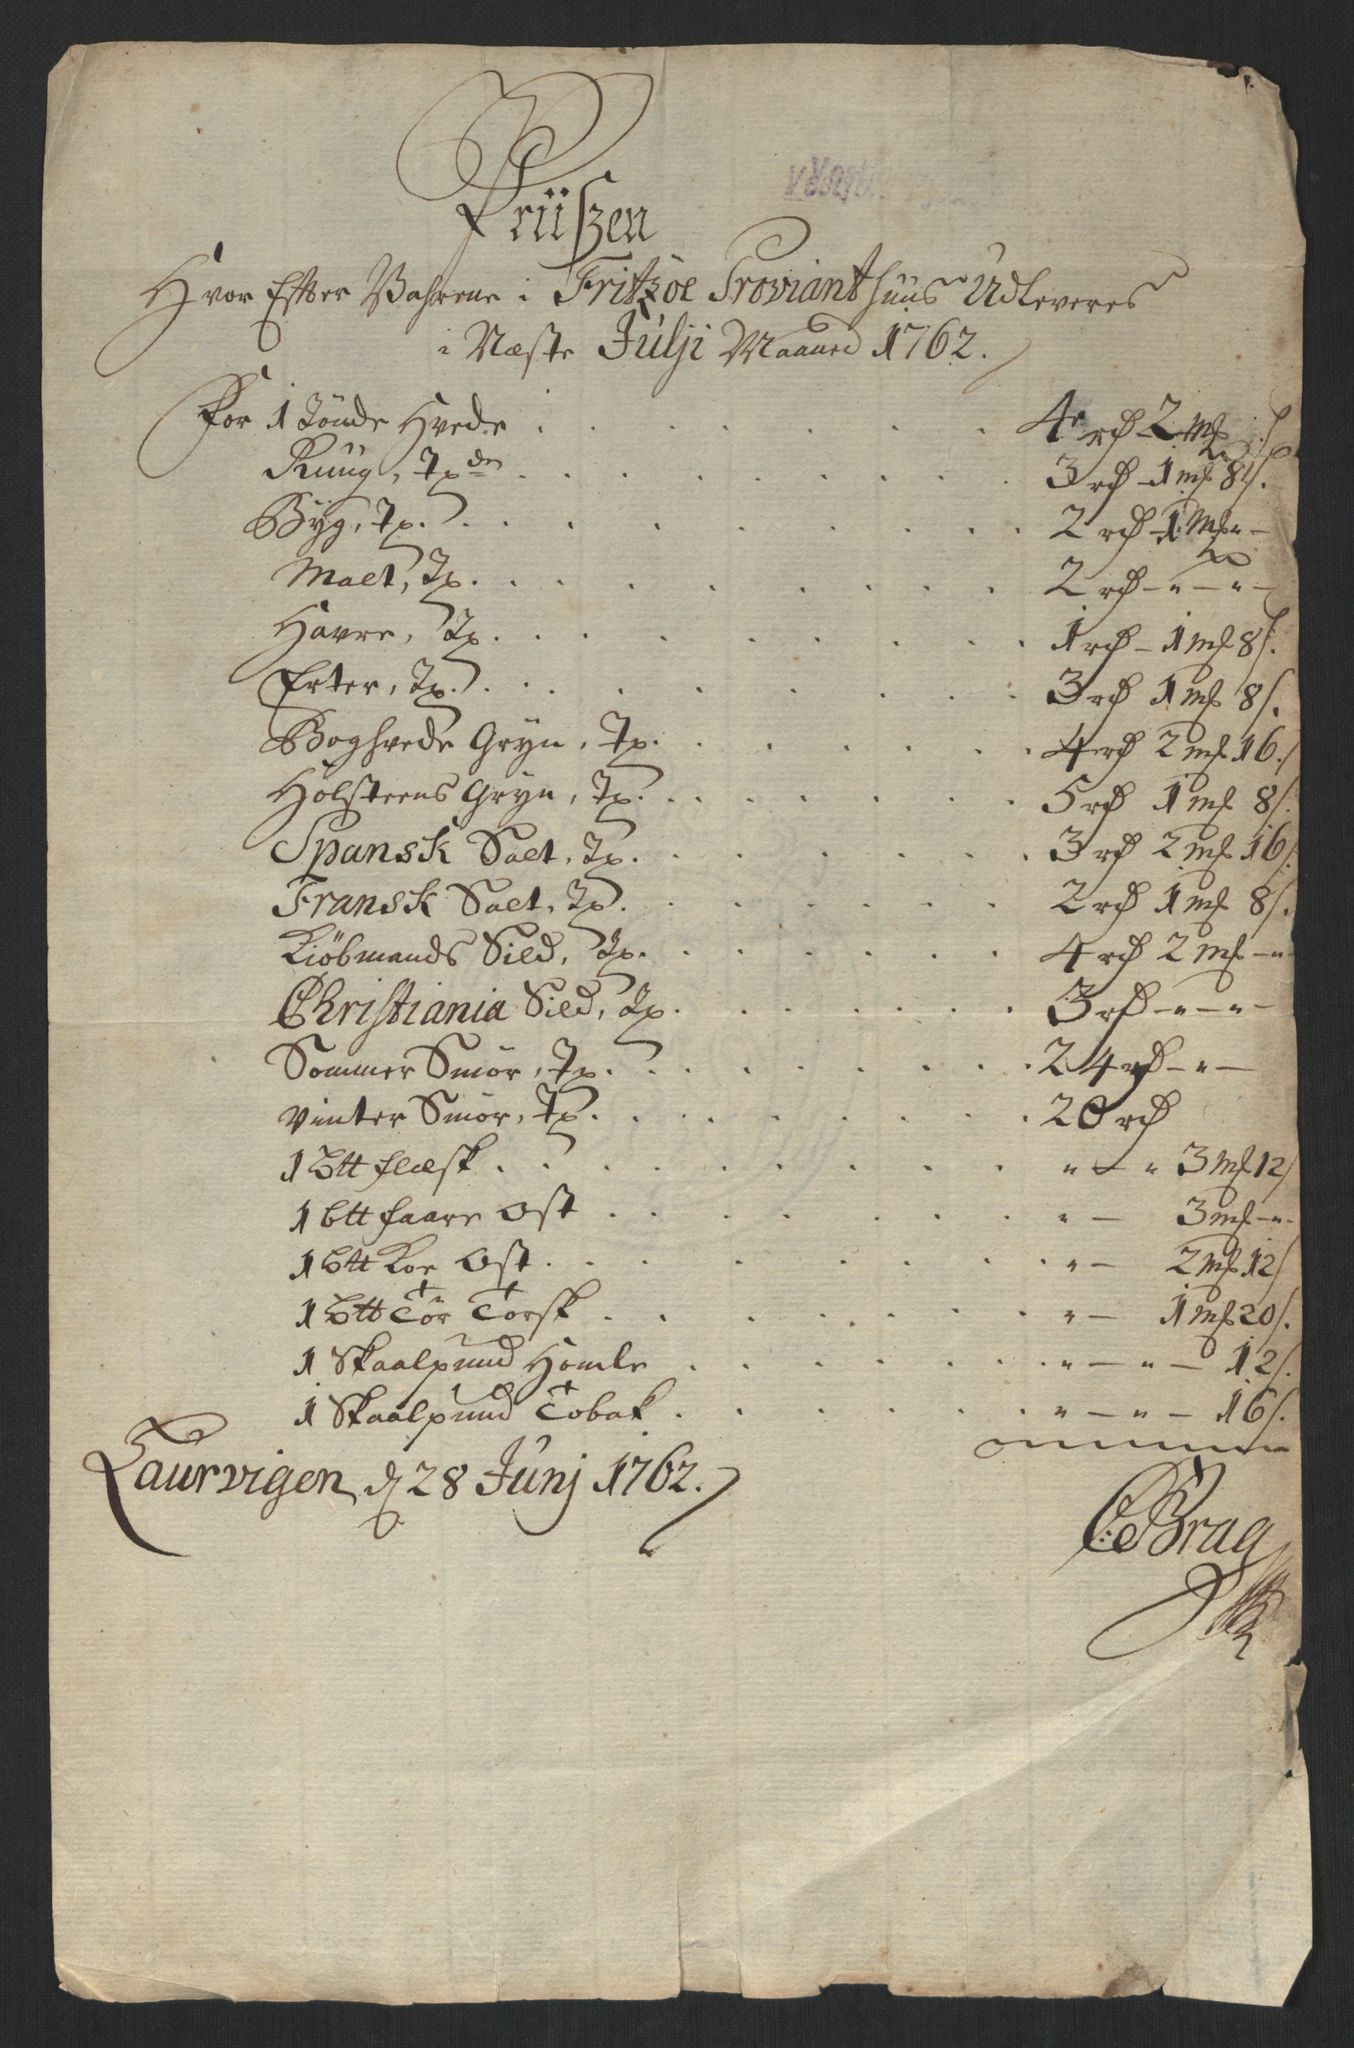 Priiszen
Hvor Efter Vahrene i Fritzöe Provianthuus Udleveres
i Næste Julji Maaned 1762.
For 1 Tönde Hvede . . . . . . 4 rd 2 mk
Ruug, Tde . . . . . . 3 rd - 1 mk 8 s.
Byg, Td. . . . . . . 2 rd - 1 mk " -
Malt, Td. . . . . . . 2 rd - " - " -
Havre, Td. . . . . . . 1 rd - 1 mk 8 s.
Erter, Td. . . . . . . 3 rd 1 mk 8 s.
Boghvede Gryn, Td. . . . . . . 4 rd 2 mk 16 s
Holsteens Gryn, Td. . . . . . . 5 rd 1 mk 8 s.
Spansk Salt, Td. . . . . . . 3 rd 2 mk 16 s.
Fransk Salt, Td. . . . . . . 2 rd 1 mk 8 s.
Kiöbmands Sild, Td. . . . . . . 4 rd 2 mk - " -
Christiania Sild, Td. . . . . . . 3 rd - " - " -
Sommer Smör, Td. . . . . . . 24 rd - " -
Vinter Smör, Td. . . . . . . 20 rd
1 Btt flæsk . . . . . . " - " 3 mk 12 s
1 btt faare Ost . . . . . . " - 3 mk - " -
1 Btt Koe Ost . . . . . . " - 2 mk 12 s
1 Btt Tör Torsk . . . . . . " - 1 mk 20 s.
1 Skaalpund Homle . . . . . . " - " - 12 s.
1 Skaalpund Tobak . . . . . . " - " - 16 s.
Laurvigen, d 28 Junj 1762.
C: Brag